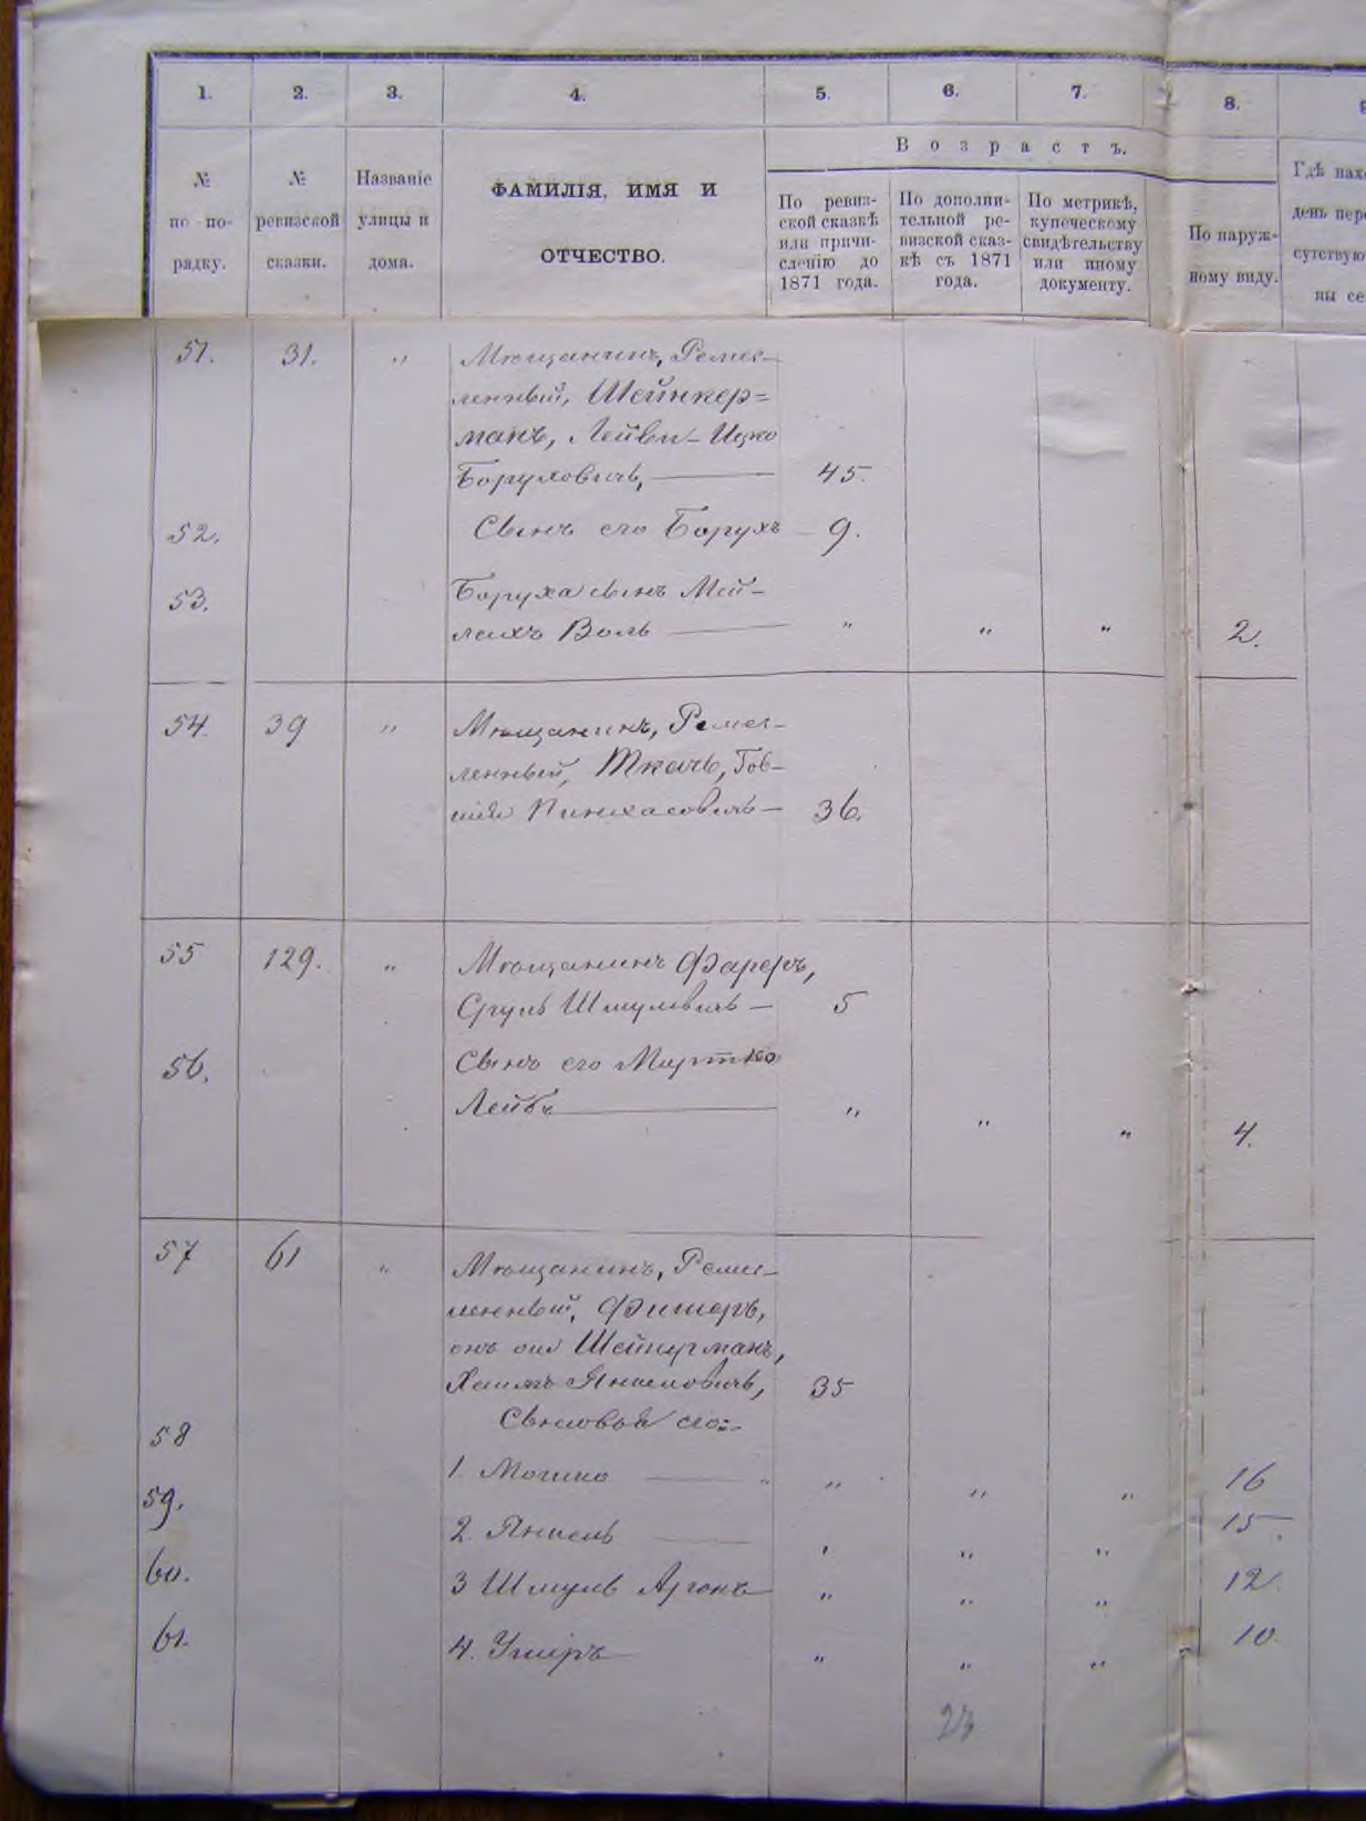 1. 2. 3. 4. 5. 6. 7. 8.
Возрастъ.
№ по порядку.
№ ревизской сказки.
Названіе улицы и дома.
ФАМИЛІЯ, ИМЯ И
ОТЧЕСТВО.
По ревиз-
ской сказкѣ
или причи-
сленію до
1871 года.
По дополни-
тельной ре-
визской сказ-
кѣ съ 1871
года.
По метрикѣ,
купеческому
свидѣтельству
или иному
документу.
По наруж-
ному виду.
Гдѣ
день
51. 31. " Мѣщанинъ, Ремес-
ленный, Шейнкер=
манъ, Лейви-Ицко
Боруховичъ, 45.
52. Сынъ его Борухъ 9.
53. Боруха сынъ Мей-
лихъ Воль " " " 2.
54. 39 " Мѣщанинъ, Ремес-
ленный, Ткачъ,
Пинхасовичъ 36.
55 129. " Мѣщанинъ Фареръ,
Сруль Шмулевичъ 5
56. Сынъ его Мортко
Лейбъ " " " 4.
57 61 " Мѣщанинъ, Ремес-
ленный, Фишеръ,
онъ же Шейнерманъ,
Хаимъ Янкелевичъ, 35
Сыновья его:
58 1. Мошко " " " 16
59. 2. Янкель " " " 15.
60. 3 Шмуль Аронъ " " " 12.
61. 4. Ушеръ " " " 10.
23